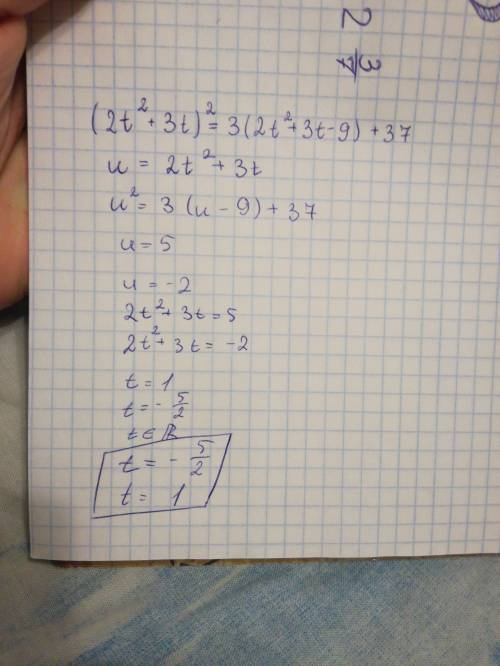 2 3/7
(2t²+3t)²=3(2t²+3t-9)+37
u = 2t²+3t
u²= 3(u-9)+37
u=5
u=-2
2t²+3t=5
2t²+3t=-2
t=1
t=-5/2
t∈ℝ
t=-5/2
t= 1